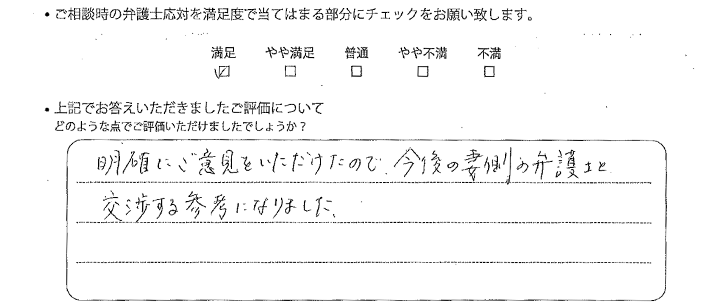 ・ご相談時の弁護士応対を満足度で当てはまる部分にチェックをお願い致します。
満足 やや満足 普通 やや不満 不満
☑ □ □ □ □
・上記でお答えいただきましたご評価について
どのような点でご評価いただけましたでしょうか？
明確にご意見をいただけたので、今後の妻側の弁護士と
交渉する参考になりました。